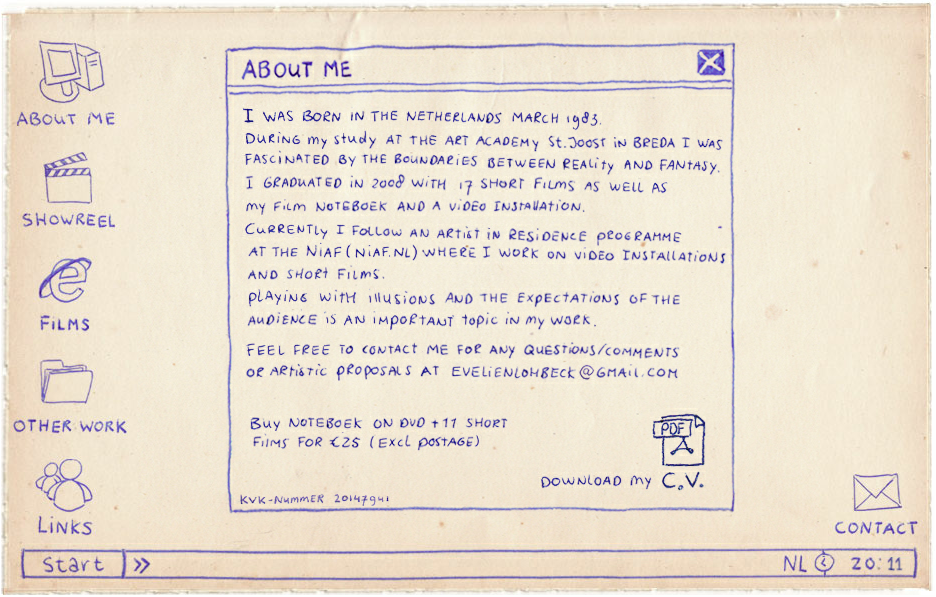 ABOUT ME
SHOWREEL
FILMS
OTHER WORK
LINKS
ABOUT ME
I WAS BORN IN THE NETHERLANDS MARCH 1983.
DURING my study AT THE ART ACADEMY St.JOOST IN BREDA I WAS
FASCINATED BY THE BOUNDARIES BETWEEN REALITY AND FANTASY.
I GRADUATED IN 2008 WITH 17 SHORT FILMS AS WELL AS
my FILM NOTEBOEK AND A VIDEO INSTALLATION.
CURRENTLY I FOLLOW AN ARTIST IN RESIDENCE PROGRAMME
AT THE NIAF (NIAF.NL) WHERE I WORK ON VIDEO INSTALLATIONS
AND SHORT FILMS.
PLAYING WITH ILLUSIONS AND THE EXPECTATIONS OF THE
AUDIENCE IS AN IMPORTANT TOPIC IN MY WORK.
FEEL FREE TO CONTACT ME FOR ANY QUESTIONS/COMMENTS
OR ARTISTIC PROPOSALS AT EVELIENLOHBECK@GMAIL.COM
BUY NOTEBOEK ON DVD + 11 SHORT
FILMS FOR €25 (EXCL POSTAGE)
PDF
DOWNLOAD MY C.V.
KVK-NUMMER 20147941
CONTACT
Start »
NL 20:11